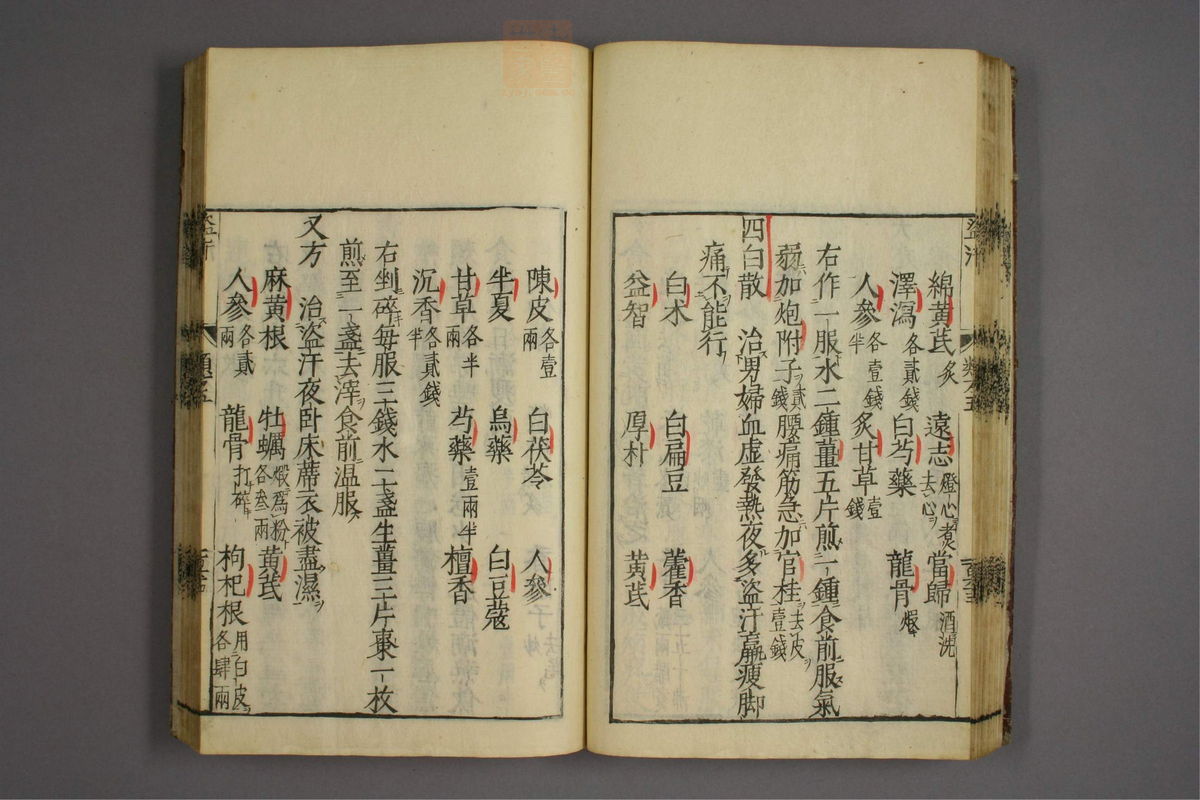 綿黄芪炙 遠志燈心煮去心 當歸酒洗
澤瀉各貳錢 白芍藥 龍骨煅
人參各壹錢半 炙甘草壹錢
右作一服水二鍾薑五片煎一鍾食前服氣
弱加炮附子貳錢腰痛筋急加官桂去皮壹錢
四白散 治男婦血虛發熱夜多盜汗羸瘦脚
痛不能行
白术 白扁豆 藿香
益智 厚朴 黄芪
陳皮各壹兩 白茯苓 人參
半夏 烏藥 白豆蔻
甘草各半兩 芍藥壹兩半 檀香
沉香各貳錢半
右剉碎每服三錢水一盞生薑三片棗一枚
煎至一盞去滓食前温服
又方 治盜汗夜卧床蓆衣被盡濕
麻黄根 牡蠣煅爲粉各叁兩 黄芪
人參各貳兩 龍骨打碎 枸杞根用白皮各肆兩